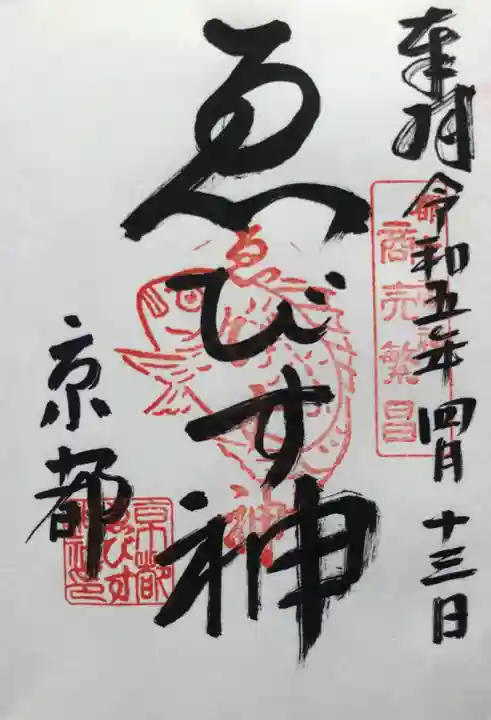 奉拝 令和五年四月十三日
商売繁昌
ゑびす神
ゑ
神
京都
京都
ゑびす
神社之印